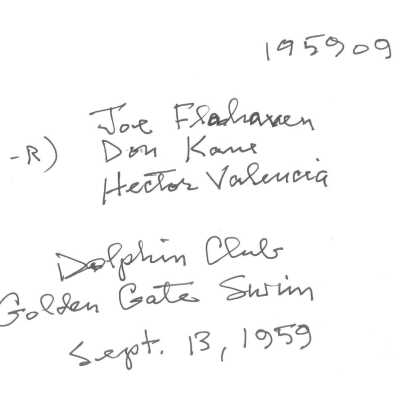 195909
Joe Flahaven
-R) Don Kane
Hector Valencia
Dolphin Club
Golden Gate Swim
Sept. 13, 1959